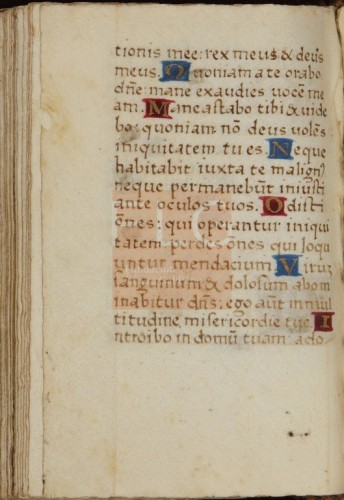 tionis mee: rex meus & deus
meus. Quoniam a te orabo
dñe: mane exaudies vocẽ me
am. Mane astabo tibi & vide
bo: quoniam nõ deus volẽs
iniquitatem tu es. Neque
habitabit iuxta te malignꝰ
neque permanebũt iniusti
ante oculos tuos. Odisti
õnes: qui operantur iniqui
tatem perdes õnes qui loqu
untur mendacium. Viruz
sanguinum & dolosum abom
inabitur dñs: ego aũt in mul
titudine misericordie tue. I
ntroibo in domũ tuam: ado